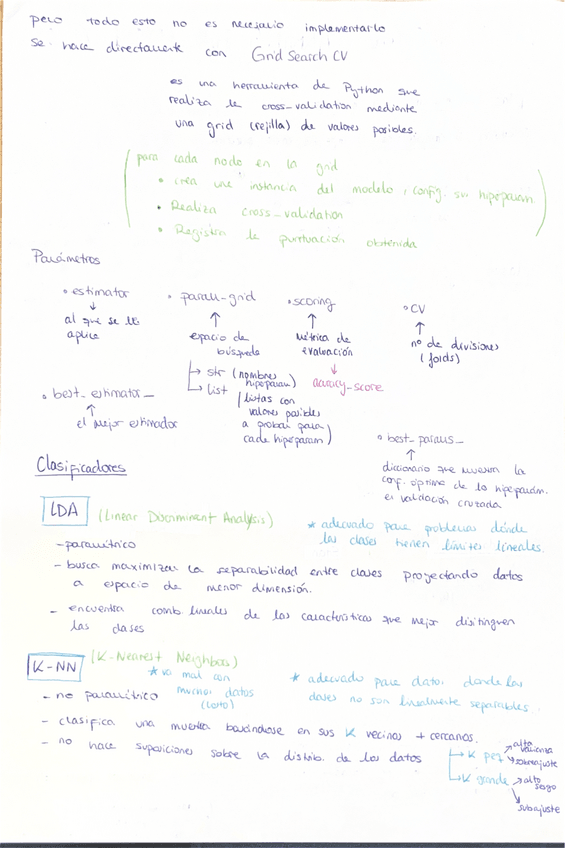 pero todo esto no es necesario implementarlo
se hace directamente con Grid Search CV
es una herramienta de Python que
realiza la cross-validation mediante
una grid (rejilla) de valores posibles.
para cada nodo en la grid
• crea una instancia del modelo y config. sus hiperparam.
• Realiza cross-validation
• Registra la puntuación obtenida
Parámetros
• estimator
↓
al que se le
aplica
• param-grid
↑
espacio de
búsqueda
→ str (nombres
hiperparam)
→ list (listas con
valores posibles
a probar para
cada hiperparam)
• scoring
↑
métrica de
evaluación
↓
accuracy_score
• CV
↑
nº de divisiones
(folds)
• best_estimator_
↑
el mejor estimador
• best_params_
↑
diccionario que muestra la
conf. óptima de los hiperparám.
en validación cruzada.
Clasificadores
LDA (Linear Discriminent Analysis)
* adecuado para problemas donde
las clases tienen límites lineales.
- paramétrico
- busca maximizar la separabilidad entre clases proyectando datos
a espacio de menor dimensión.
- encuentra comb. lineales de las características que mejor distinguen
las clases
K-NN (K-Nearest Neighbors)
* va mal con
muchos datos
(lento)
* adecuado para datos donde las
clases no son linealmente separables.
- no paramétrico
- clasifica una muestra basándose en sus K vecinos + cercanos.
- no hace suposiciones sobre la distrib. de los datos
→ K peq → alta varianza
→ sobreajuste
→ K grande → alto sesgo
→ subajuste